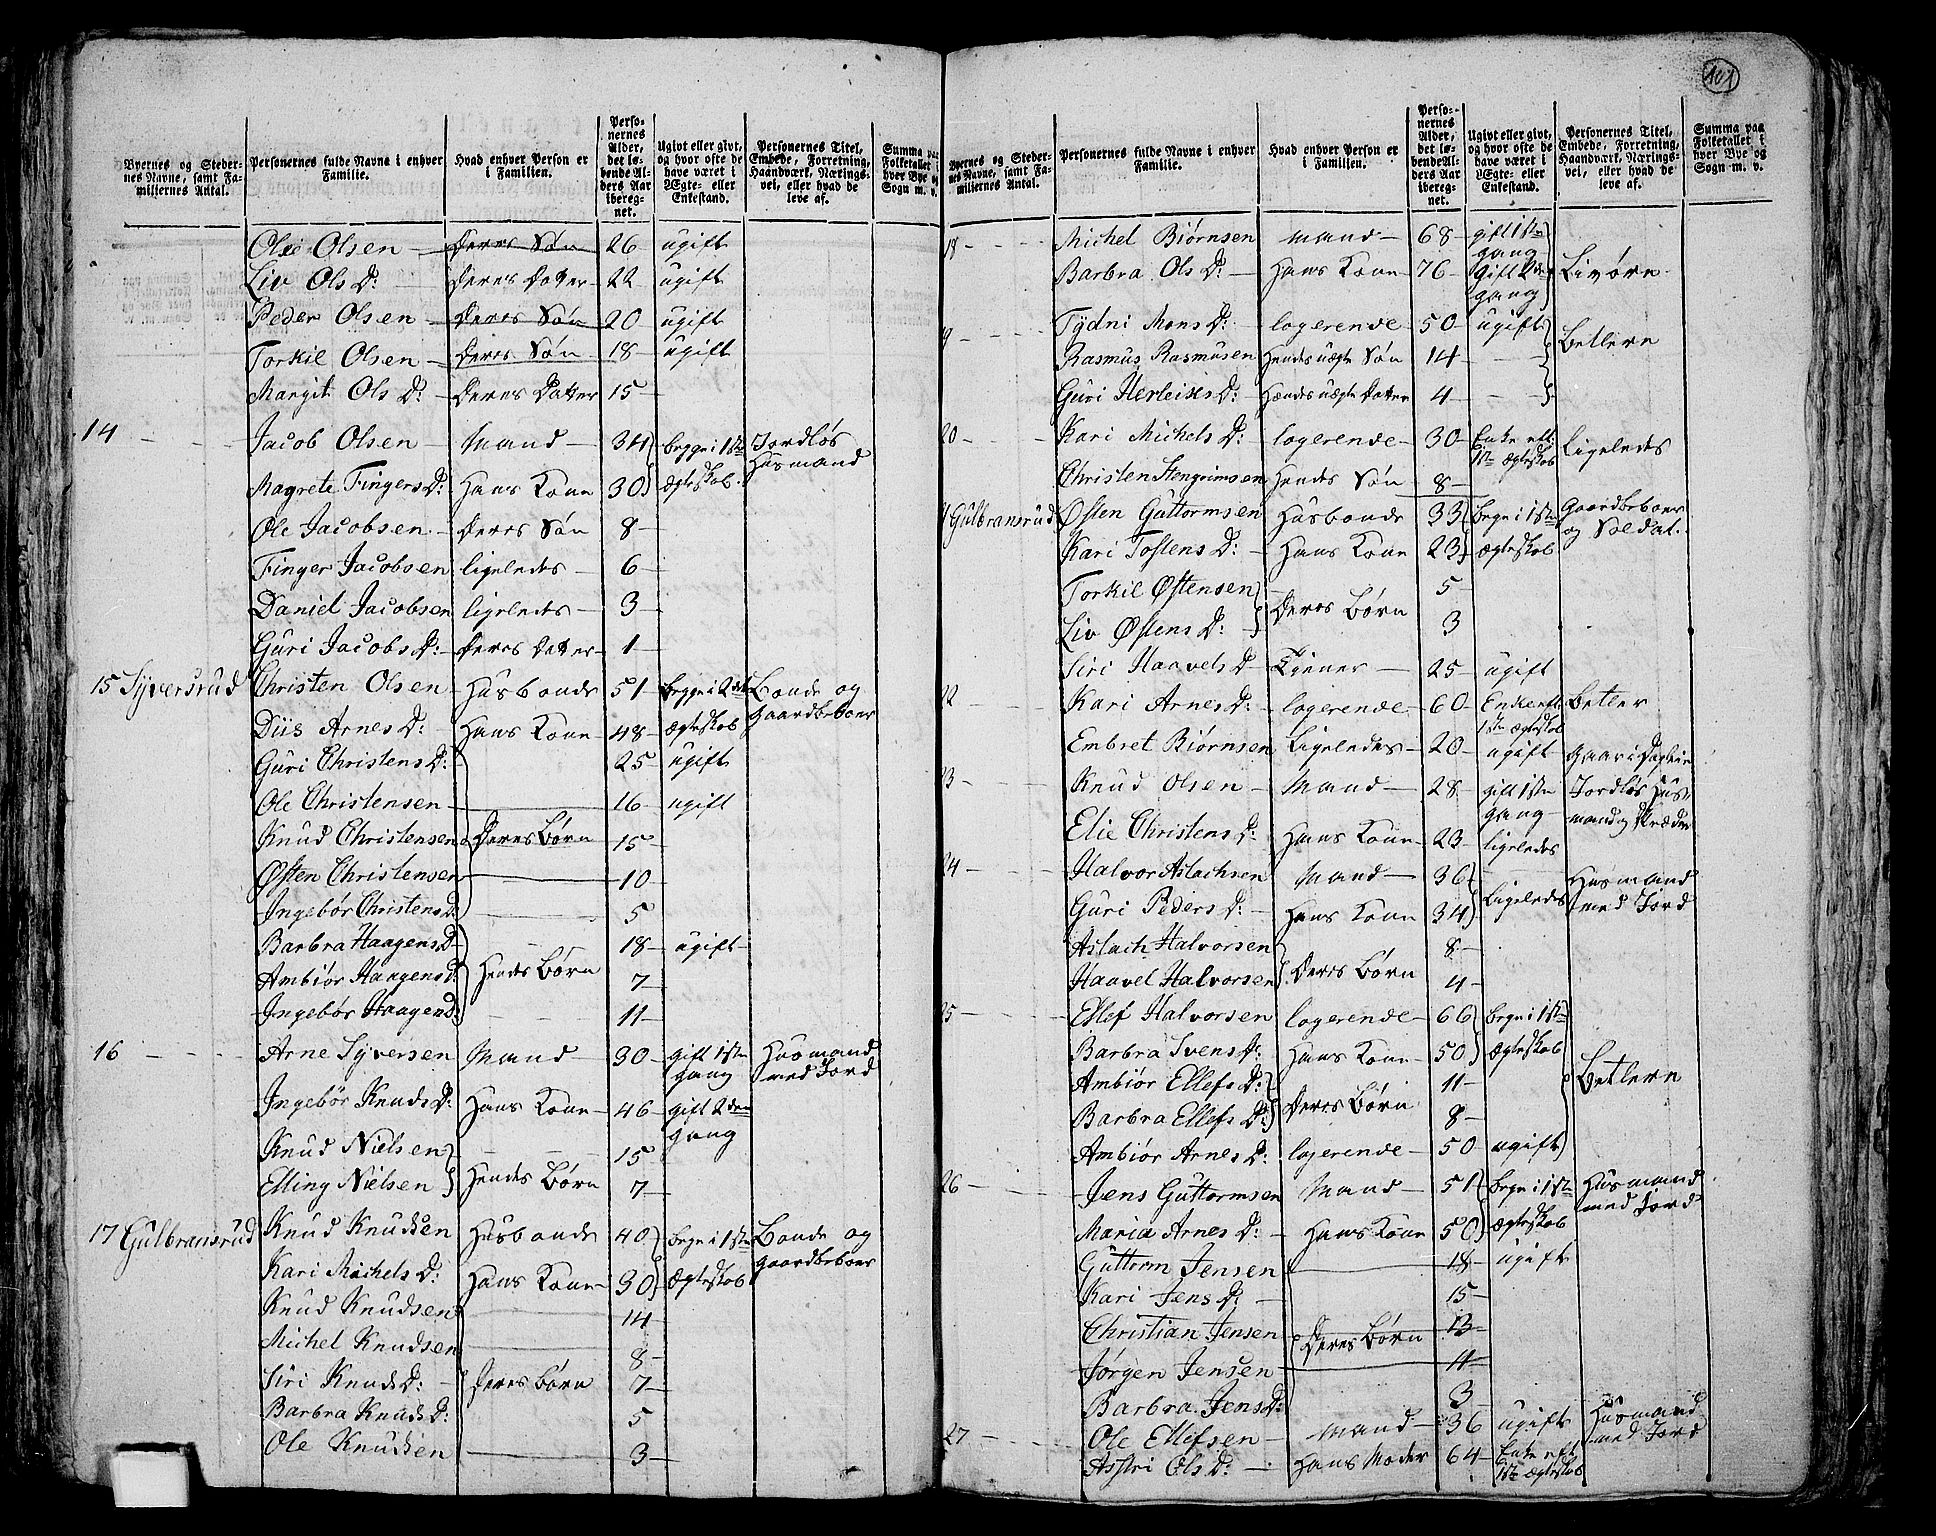 101
Byernes og Stedernes Navne, samt Familiernes Antal. | Personernes fulde Navne i enhver Familie. | Hvad enhver Person er i Familien. | Personernes Alder, det løbende Alders Aar iberegnet. | Ugivt eller givt, og hvor ofte de have været i Ægte- eller Enkestand. | Personernes Titel, Embede, Forretning, Haandværk, Næringsvei, eller hvad de leve af. | Summa paa Folketallet i hver Bye og Sogn m. v.
Olie Olsen — Deres Søn 26 ugift
Liv Ols D: — Deres Dater 22 ugift
Peder Olsen — Deres Søn 20 ugift
Torkil Olsen — Deres Søn 18 ugift
Margit Ols D: Deres Dater 15
14 Jacob Olsen — Mand — 34 begge i 1ste Jordløs Husmand
Magrete Fingers D: Hans Kone 30 ægteskab.
Ole Jacobsen — Deres Søn 8
Finger Jacobsen ligeledes — 6
Daniel Jacobsen ligeledes — 3
Guri Jacobs D: Deres Dater — 1
15 Syversrud Christen Olsen Husbonde 51 begge i 2det Bonde og
Diis Arnes D: Hans Kone 48 Ægteskab Gaardbeboer
Guri Christens D: 25 ugift
Ole Christensen 16 ugift
Knud Christensen Deres Børn 15
Østen Christensen 10
Ingebør Christens D: 5
Barbra Haagens D 18 ugift
Ambiør Haagens D: Hendes Børn 7
Ingebør Haagens D: 11
16 Arne Syversen Mand 30 gift 1ste gang Husmand med Jord
Ingebør Knuds D: Hans Kone 46 gift 2den gang
Knud Nielsen 15
Elling Nielsen Hendes Børn 7
17 Gulbransrud Knud Knudsen Husbonde 40 begge i 1ste Bonde og
Kari Michels D: Hans Kone 30 Ægteskab Gaardbeboer
Knud Knudsen 14
Michel Knudsen 8
Siri Knuds D: Deres Børn 7
Barbra Knuds D: 5
Ole Knudsen 3
Byernes og Stedernes Navne, samt Familiernes Antal. | Personernes fulde Navne i enhver Familie. | Hvad enhver Person er i Familien. | Personernes Alder, det løbende Alders Aar iberegnet. | Ugivt eller givt, og hvor ofte de have været i Ægte- eller Enkestand. | Personernes Titel, Embede, Forretning, Haandværk, Næringsvei, eller hvad de leve af. | Summa paa Folketallet i hver Bye og Sogn m. v.
18 Michel Biørnsen Mand 68 gift 1ste gang
Barbra Ols D: Hans Kone 76 gift 2den gang
9 Tydni Mons D: logerende 50 ugift Betlern
Rasmus Rasmusen Hendes uægte Søn 14
Guri Herleiks D: Hendes uægte Dater 4
20 Kari Michels D: logerende 30 Enke eft: 1ste ægteskab Ligeledes
Christen Stengrimsen Hendes Søn 8
Gulbransrud Østen Guttormsen Husbonde 33 begge i 1ste Gaardbeboer
Kari Tostens D: Hans Kone 23 ægteskab og Soldat.
Torkil Østensen 5
Liv Østens D: Deres Børn 3
Siri Haavels D Tjener 25 ugift
22 Kari Arnes D: logerende 60 Enke eft 1ste ægteskab Betler
Embret Biørnsen Ligeledes 20 ugift
23 Knud Olsen Mand 28 gift 1ste gang Jordløs Husmand og Skræder
Elie Christens D: Hans Kone 23 ligeledes
24 Halvor Aslachsen Mand 36 Husmand
Guri Peders D: Hans Kone 34 Ligeledes med Jord
Aslach Halvorsen 8
Haavel Halvorsen Deres Børn 4
25 Ellef Halvorsen logerende 66 begge i 1ste
Barbra Svens D: Hans Kone 50 Ægteskab
Ambiør Ellefs D: 11 Betlern
Barbra Ellefs D: Deres Børn 8
Ambiør Arnes D: logerende 50 ugift
26 Jens Guttormsen Mand 51 begge i 1ste Husmand
Maria Arnes D: Hans Kone 50 Ægteskab med Jord
Guttorm Jensen 18 ugift
Kari Jens D: 15
Christian Jensen Deres Børn 13
Jørgen Jensen 11
Barbra Jens D: 3
27 Ole Ellefsen Mand 36 ugift Husmand
Assri Ols D: Hans Moder 64 Enke eft 1ste ægteskab med Jord